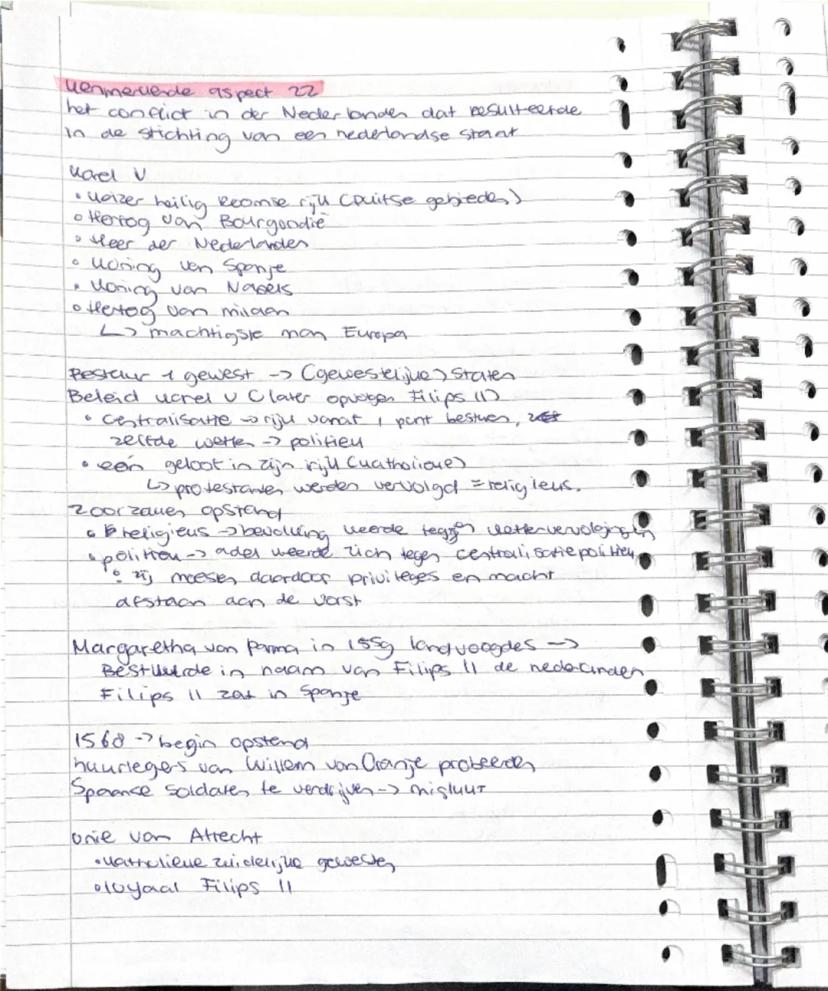 Kenmerkende aspect 22
het conflict in der Nederlanden dat resulteerde
in de stichting van een nederlandse staat
Karel V
• Keizer heilig Roomse rijk (Duitse gebieden)
• Hertog van Bourgondië
• Heer der Nederlanden
• Koning van Spanje
• Koning van Napels
• Hertog van milaan
↳ machtigste man Europa
Bestuur 1 gewest → (gewestelijke) staten
Beleid Karel V (later opvolger Filips II)
• centralisatie → rijk vanaf 1 punt besturen,
zelfde wetten → politiek
• één geloof in zijn rijk (katholieke)
↳ protestanten werden vervolgd = religieus.
2 oorzaken opstand
• religieus → bevolking keerde tegen kettervervolgingen
• politiek → adel keerde zich tegen centralisatiepolitiek
• zij moesten daardoor privileges en macht
afstaan aan de vorst
Margaretha van Parma in 1559 landvoogdes →
Bestuurde in naam van Filips II de nederlanden
Filips II zat in Spanje
1568 → begin opstand
huurlegers van Willem van Oranje probeerden
Spaanse soldaten te verdrijven → mislukt
Unie van Atrecht
• katholieke zuidelijke gewesten
• loyaal Filips II